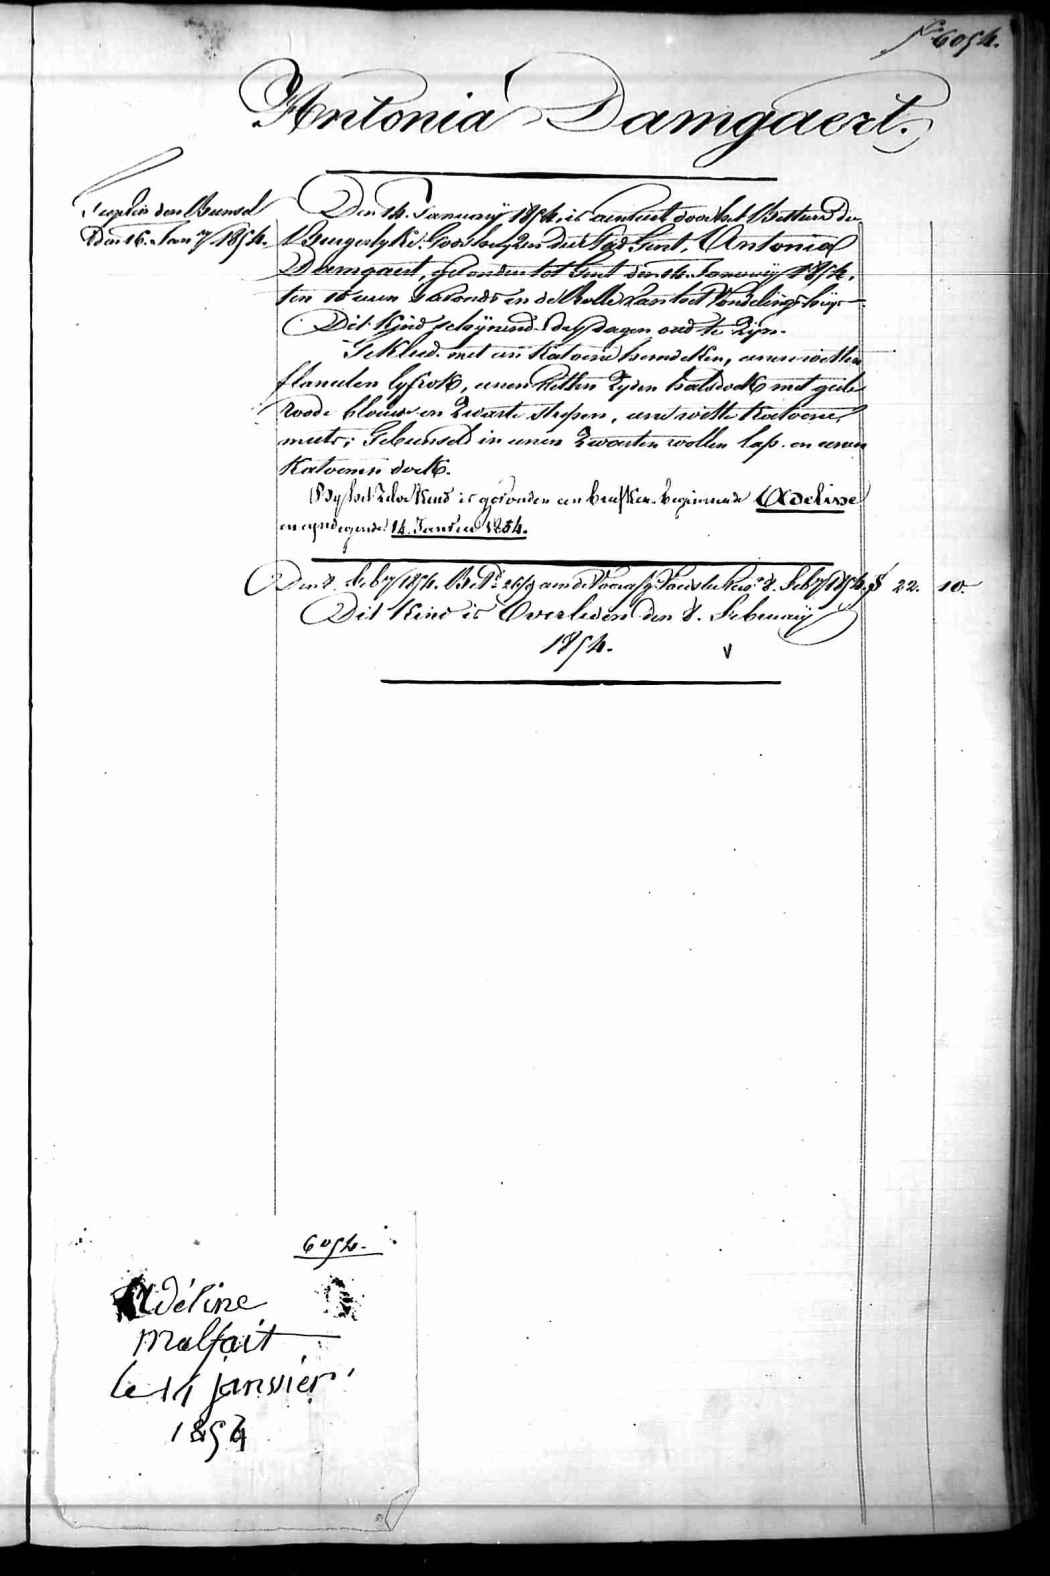 N° 6054.
Antonia Damgaert.
den Bunsel
Den 16. Jany 1854.
Den 14. January 1854, is aenhert door het Bestuur der
Burgerlyke Godshuyzen der Stad Gent, Antonia
Damgaert, gevonden tot Gent den 14. January 1854,
ten 10 uren s'avonds in de Rolle van het Vondelingshuys.
Dit Kind schynende dry dagen oud te zyn.
Gekleed met een Katoene hemdeken, eenen witten
flanelen lyfrok, eenen witten zyden halsdoek met gele
roode blauwe en zwarte strepen, eene witte Katoene
muts; Gebunseld in eenen zwarten wollen lap en eenen
Katoenen doek.
By het zelve Kind is gevonden een briefken beginnende Adeline
en eyndegende 14. Janvier 1854.
Den 8. Feby 1854. Bet. aen de 8. Feby 1854. 22. 10.
Dit Kind is Overleden den 8. February
1854.
6054.
Adéline
malfait
le 14 janviér
1854